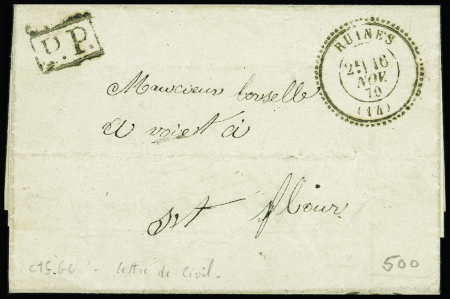 P.P.
RUINES
2E 16
NOV
70
(14)
Monsieur bonselle
a voiest à
st flour
c15.GC - lettre de Civil -
500